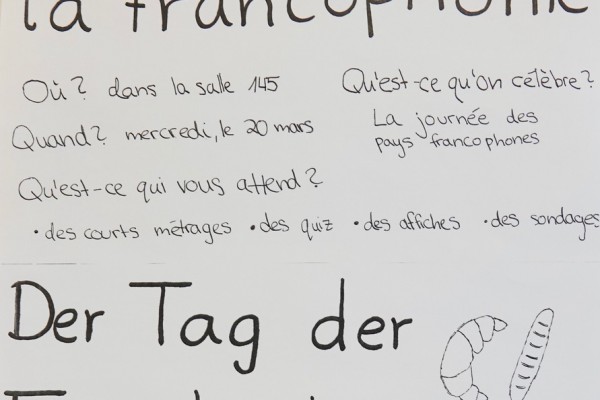 la francophonie
Où? dans la salle 145
Qu'est-ce qu'on célèbre?
Quand? mercredi, le 20 mars
La journée des
pays francophones
Qu'est-ce qui vous attend?
• des courts métrages • des quiz • des affiches • des sondages
Der Tag der